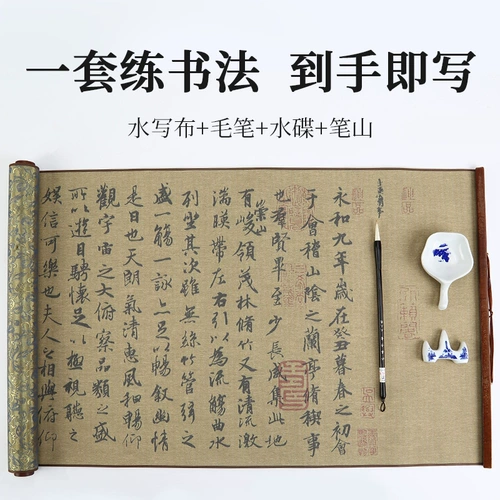 一套练书法 到手即写
水写布+毛笔+水碟+笔山
永和九年歲在癸丑暮春之初會
于會稽山陰之蘭亭脩禊事
也羣賢畢至少長咸集此地
有崇山峻領茂林脩竹又有清流激
湍暎帶左右引以為流觴曲水
列坐其次雖無絲竹管弦之
盛一觴一詠亦足以暢敘幽情
是日也天朗氣清惠風和暢仰
觀宇宙之大俯察品類之盛
所以遊目騁懷足以極視聽之
娛信可樂也夫人之相與俯仰